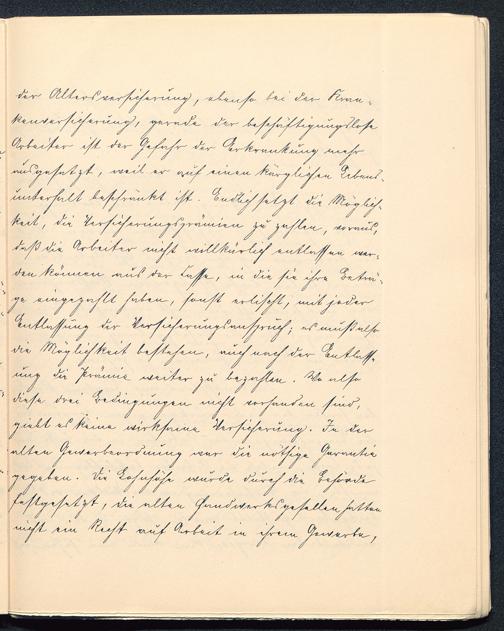 der Altersversicherung, ebenso bei der Kran-
kenversicherung, gerade der beschäftigungslose
Arbeiter ist der Gefahr der Erkrankung mehr
ausgesetzt, weil er auf einen kärglichen Lebens-
unterhalt beschränkt ist. Endlich setzt die Möglich-
keit, die Versicherungsprämien zu zahlen, voraus,
daß die Arbeiter nicht willkürlich entlassen wer-
den können aus der Kasse, in die sie ihre Beträ-
ge eingezahlt haben, sonst erlischt, mit jeder
Entlassung der Versicherungsanspruch; es muß also
die Möglichkeit bestehen, auch nach der Entlass-
ung die Prämie weiter zu bezahlen. Wo also
diese drei Bedingungen nicht vorhanden sind,
giebt es keine wirksame Versicherung. In der
alten Gewerbeordnung war die nöthige Garantie
gegeben. Die Lohnhöhe wurde durch die Behörde
festgesetzt, die alten Handwerksgesellen hatten
nicht ein Recht auf Arbeit in ihrem Gewerbe,